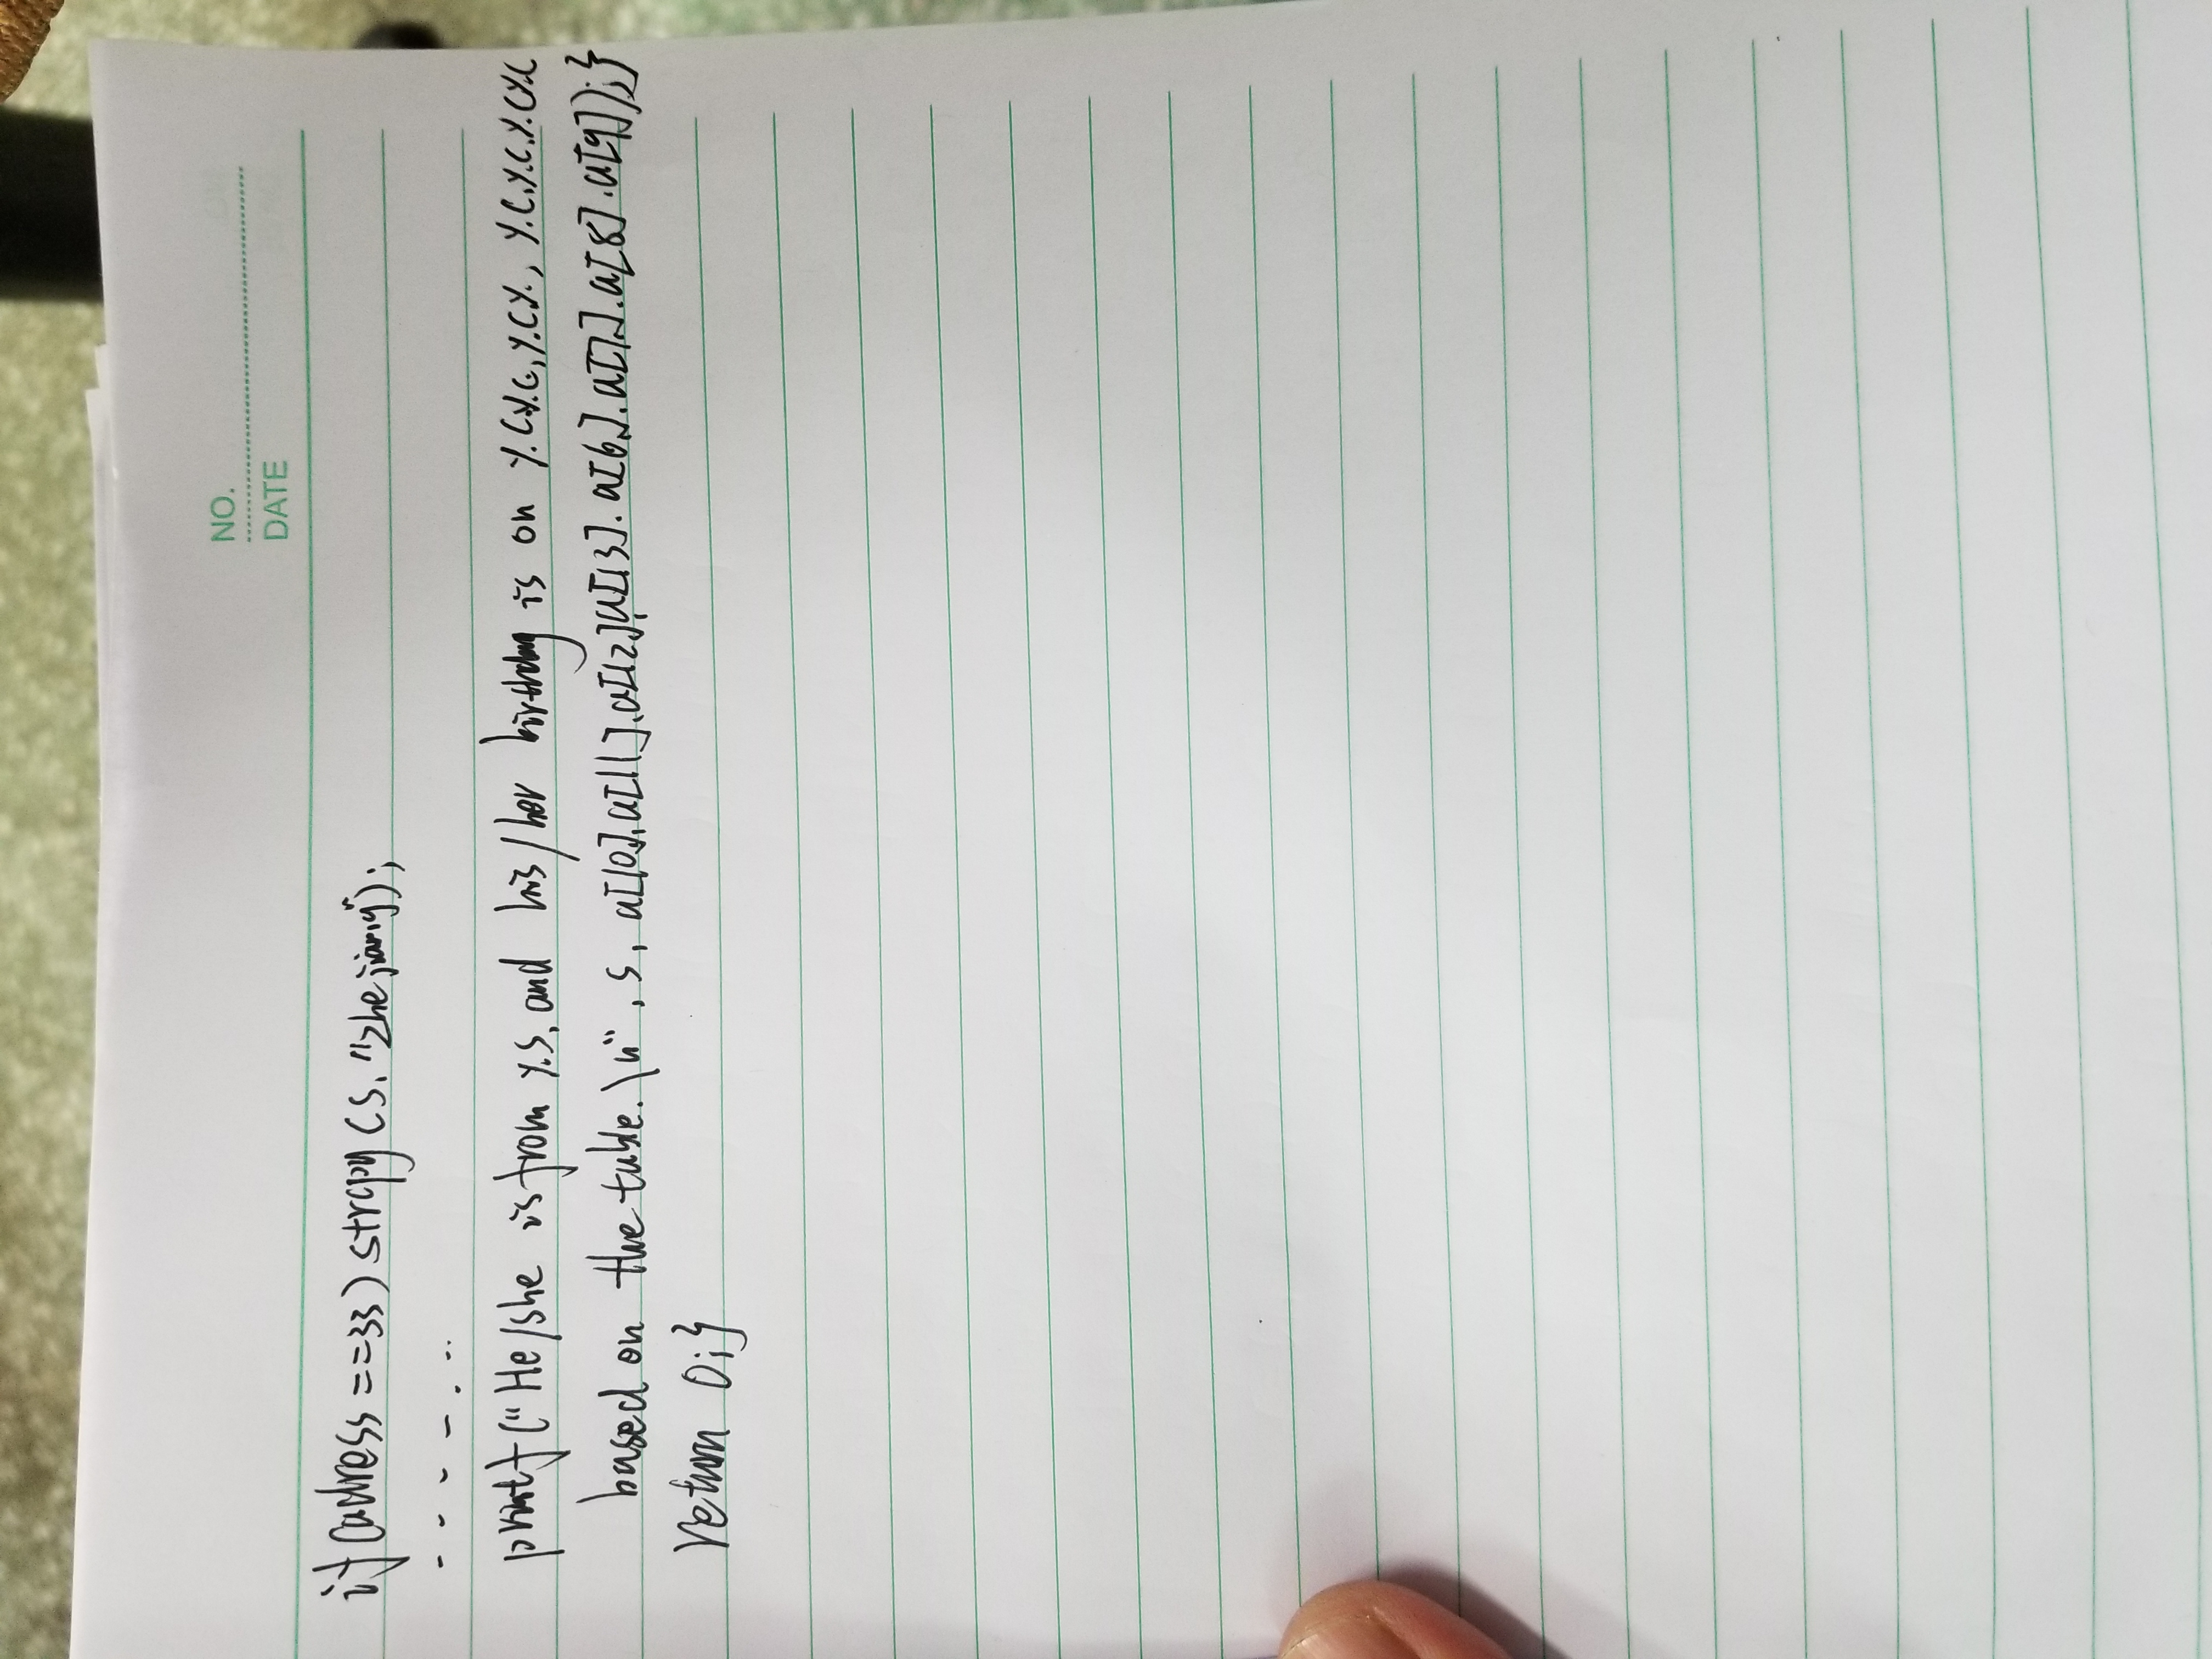 NO.
DATE
if (adress ==33) strcpy (s, "zhejiang");
- - - - . ..
printf ("He/she is from %s, and his/her birthday is on %c%c,%c%, %c%c%c%c
based on the table.\n", s, a[10],a[11],a[12],a[13],a[6],a[7],a[8],a[9]);}
return 0;}